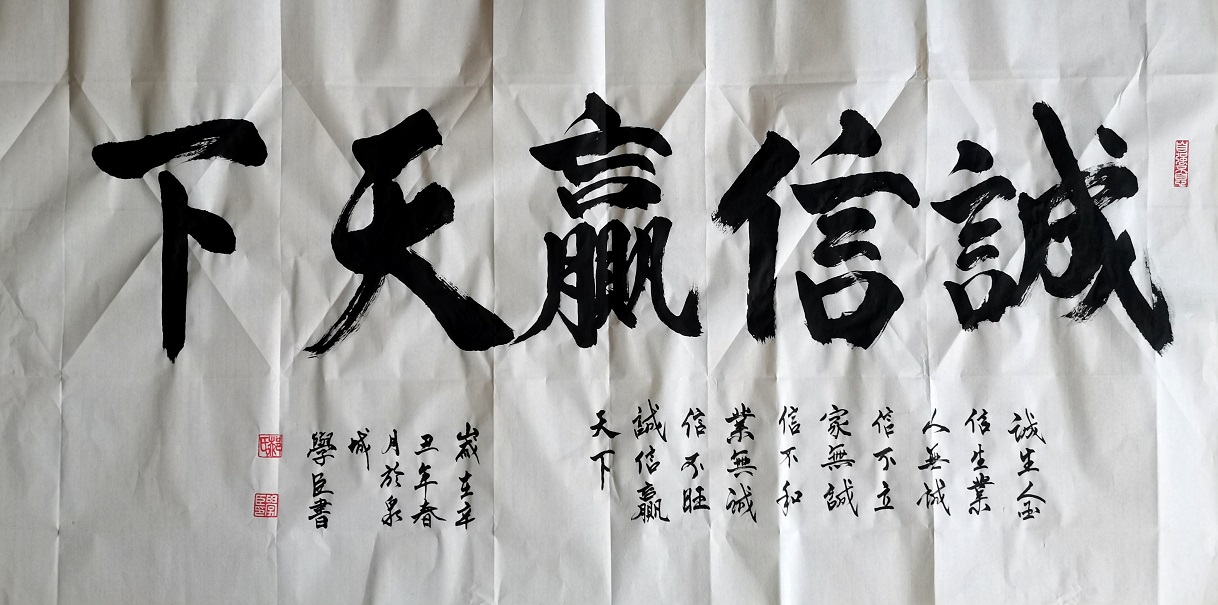 自强不息
誠信贏天下
诚生人
信生業
人無誠
信不立
家無誠
信不和
業無誠
信不旺
誠信贏
天下
歲在辛
丑年春
月於泉
城
學臣書